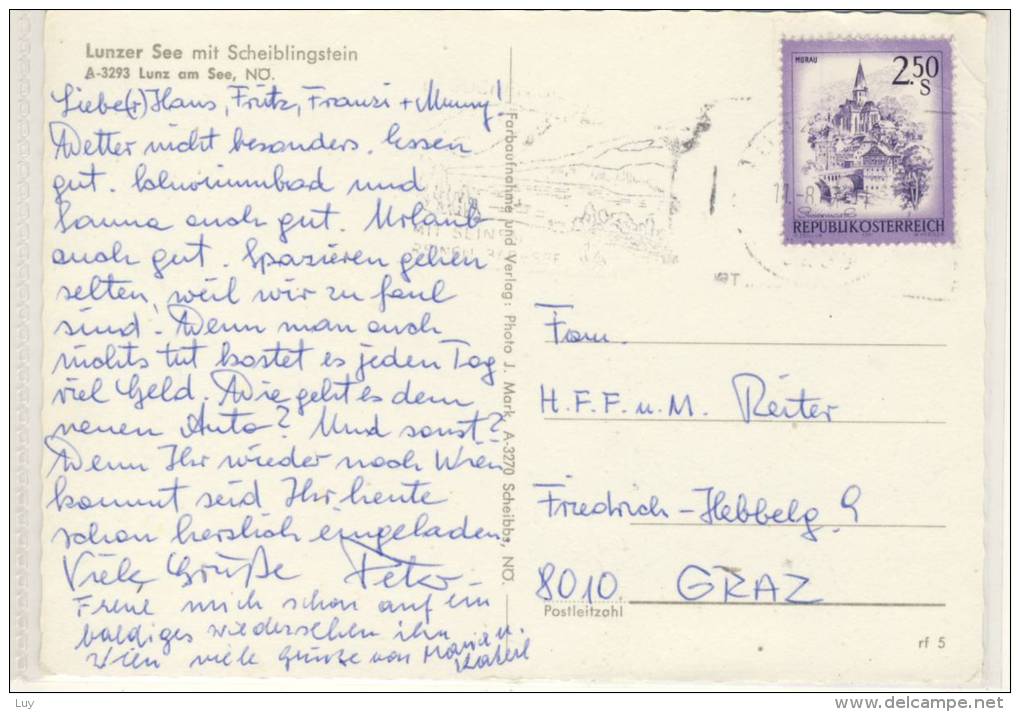 Lunzer See mit Scheiblingstein
A-3293 Lunz am See, NÖ.
Liebe(r) Hans, Fritz, Franzi + Munny!
Wetter nicht besonders. Essen
gut. Schwimmbad und
Sauna auch gut. Urlaub
auch gut. Spazieren gehen
selten, weil wir zu faul
sind! Wenn man auch
nichts tut kostet es jeden Tag
viel Geld. Wie geht es dem
neuen Auto? Und sonst?
Wenn Ihr wieder nach Wien
kommt seid Ihr heute
schon herzlich eingeladen.
Viele Grüße Peter
Freue mich schon auf ein
baldiges wiedersehen in
Wien viele Grüße von Maria u.
Farbaufnahme und Verlag: Photo J. Mark, A-3270 Scheibbs, NÖ.
MURAU
2.50
S
Steiermark
REPUBLIK ÖSTERREICH
MIT SEINE
Fam.
H.F.F.u.M. Reiter
Friedrich-Hebbelg. 9
8010 GRAZ
Postleitzahl
rf 5
Luy